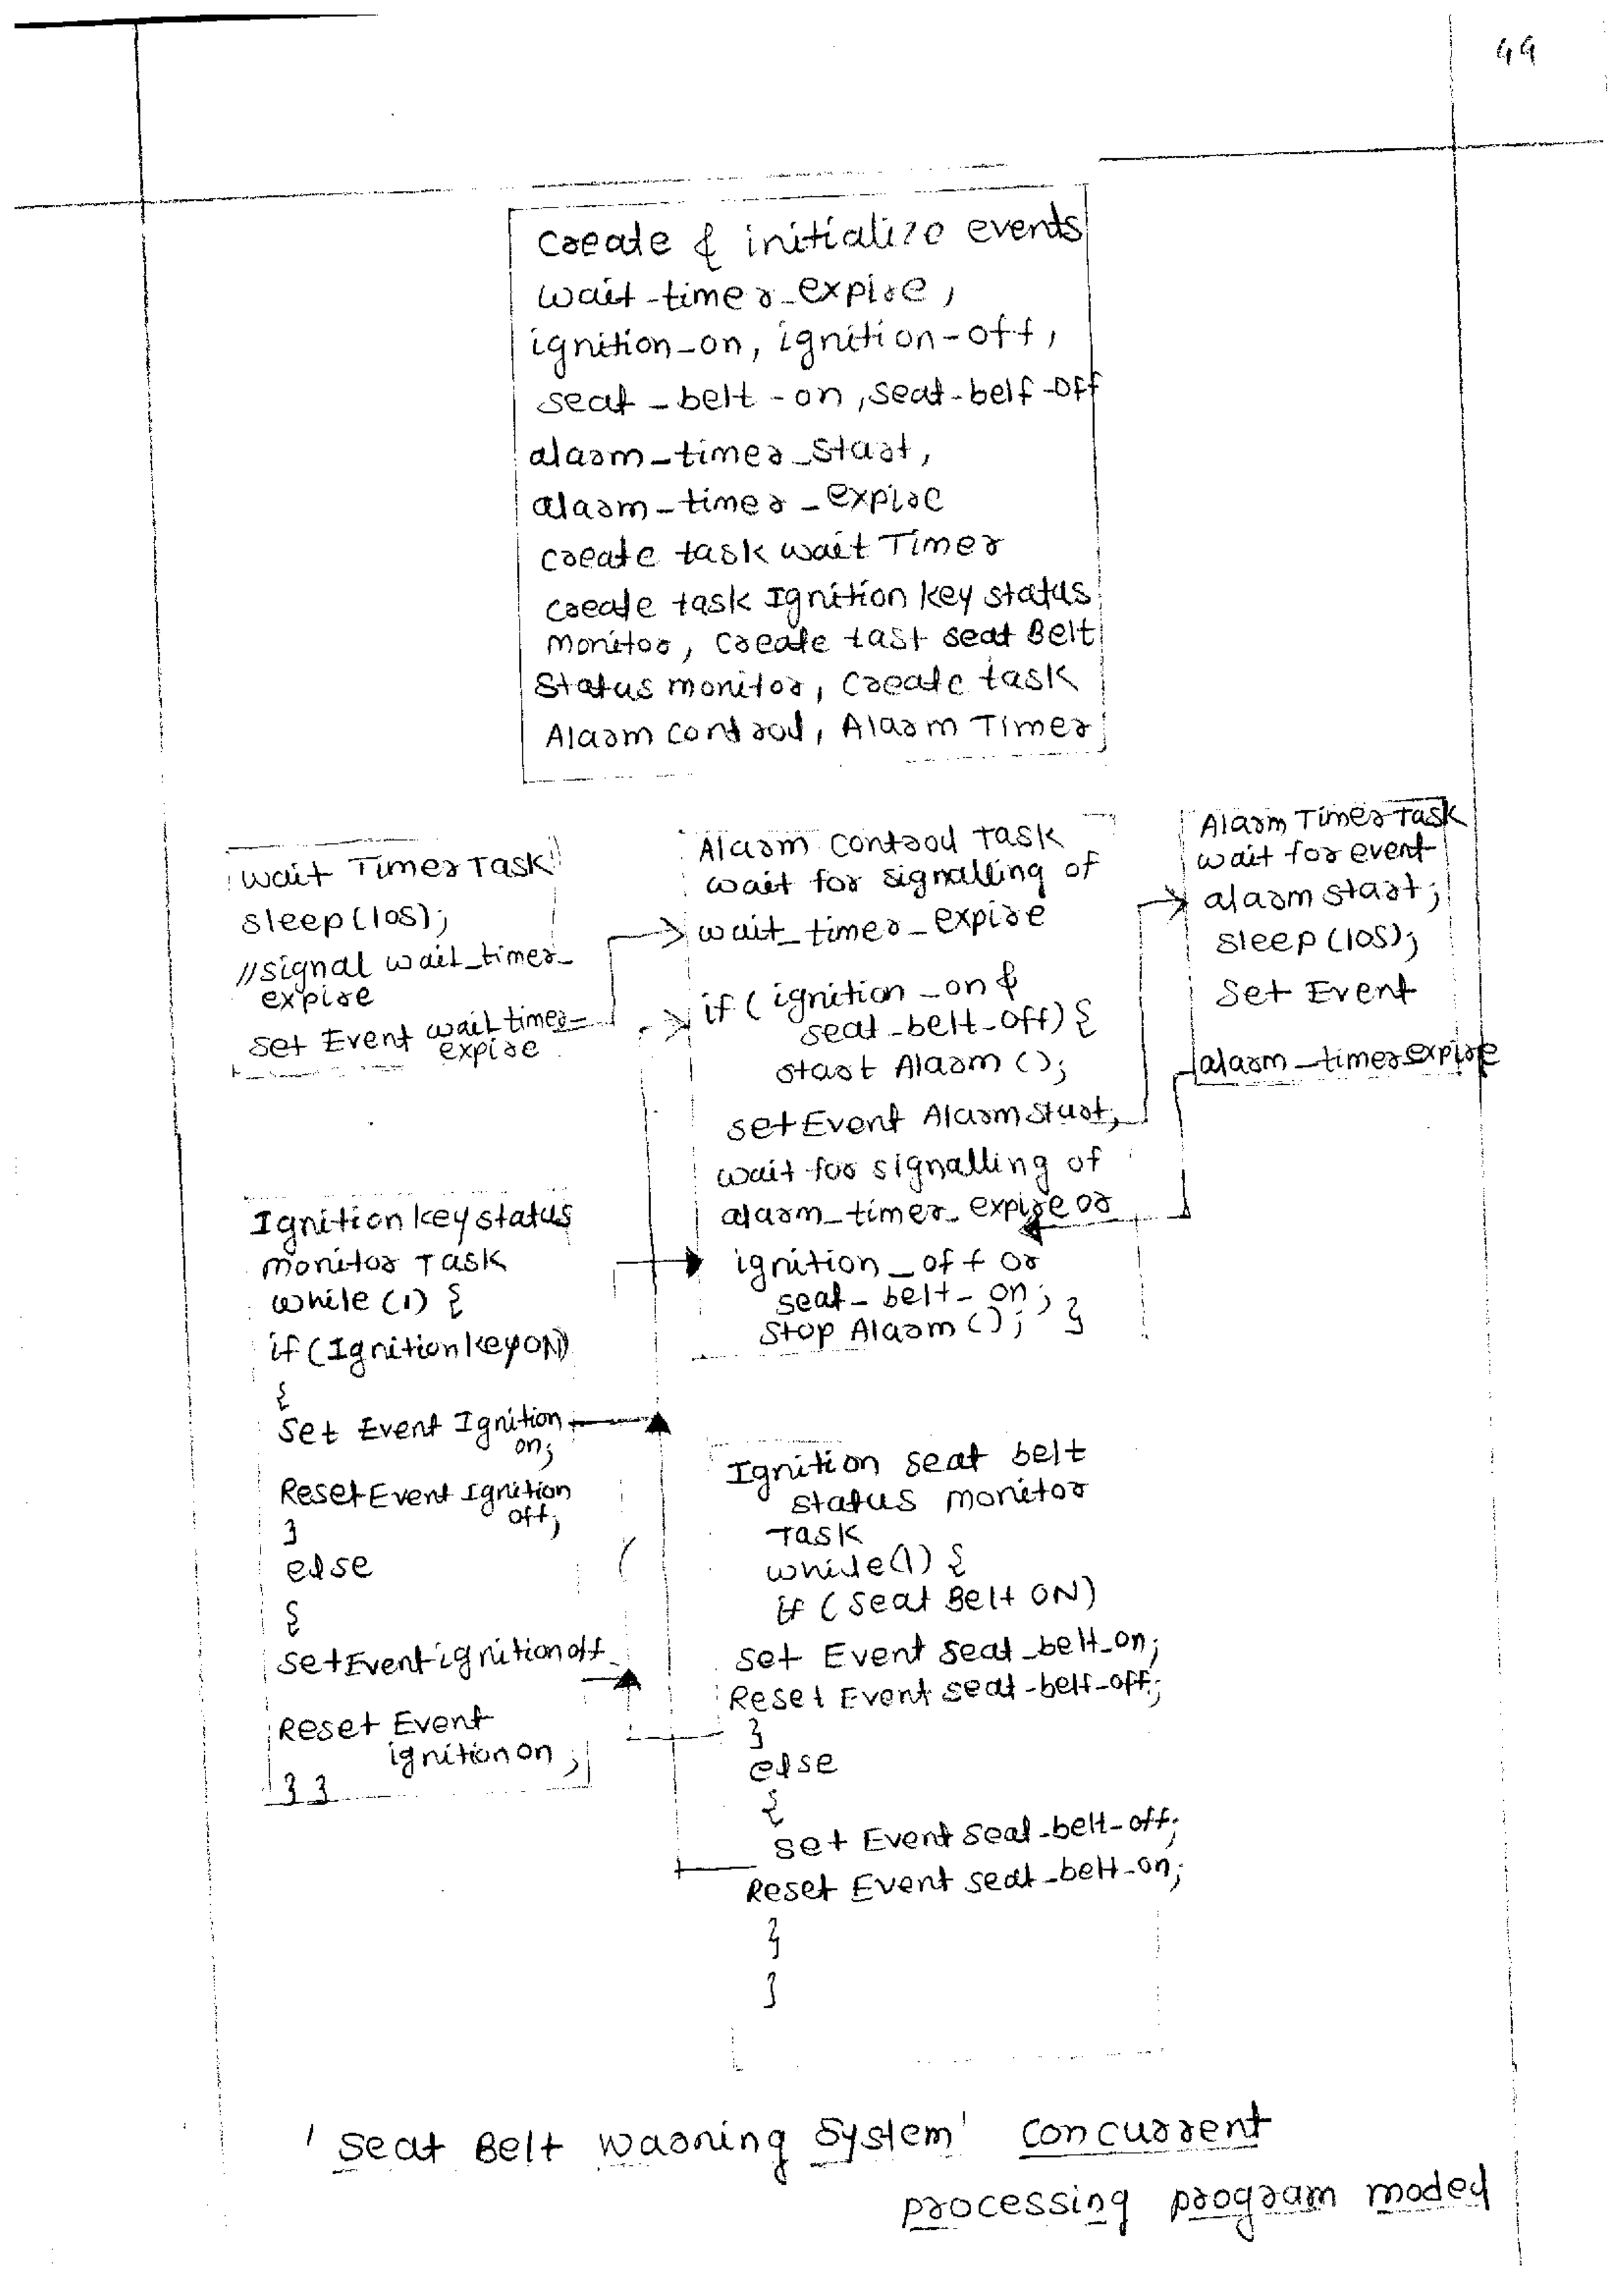 49
Create & initialize events
wait-timer_expire,
ignition_on, ignition-off,
seat_belt-on, seat-belf-off
alarm_timer_start,
alarm_timer_expire
create task wait Timer
create task Ignition key status
monitor, Create tast seat Belt
Status monitor, Create task
Alarm Control, Alarm Timer
wait Timer Task
sleep(10S);
//signal wait_timer_
expire
set Event wait timer
expire
Alarm Control Task
wait for signalling of
wait_timer_expire
if (ignition_on &
seat_belt_off) {
start Alarm ();
set Event Alarm Start;
wait for signalling of
alarm_timer_expire or
ignition_off or
seat_belt_on;
Stop Alarm(); }
Alarm Timer Task
wait for event
alarm start;
sleep (10S);
Set Event
alarm_timer expire
Ignition key status
monitor Task
while (1) {
if (Ignition key ON)
{
Set Event Ignition
on;
Reset Event Ignition
off;
}
else
{
set Event ignition off
Reset Event
ignition on;
} }
Ignition seat belt
status monitor
Task
while(1) {
if (Seat Belt ON)
set Event seat_belt_on;
Reset Event seat-belt-off;
}
else
{
set Event seat-belt-off;
Reset Event seat_belt-on;
}
}
'Seat Belt Warning System' Concurrent
processing program model